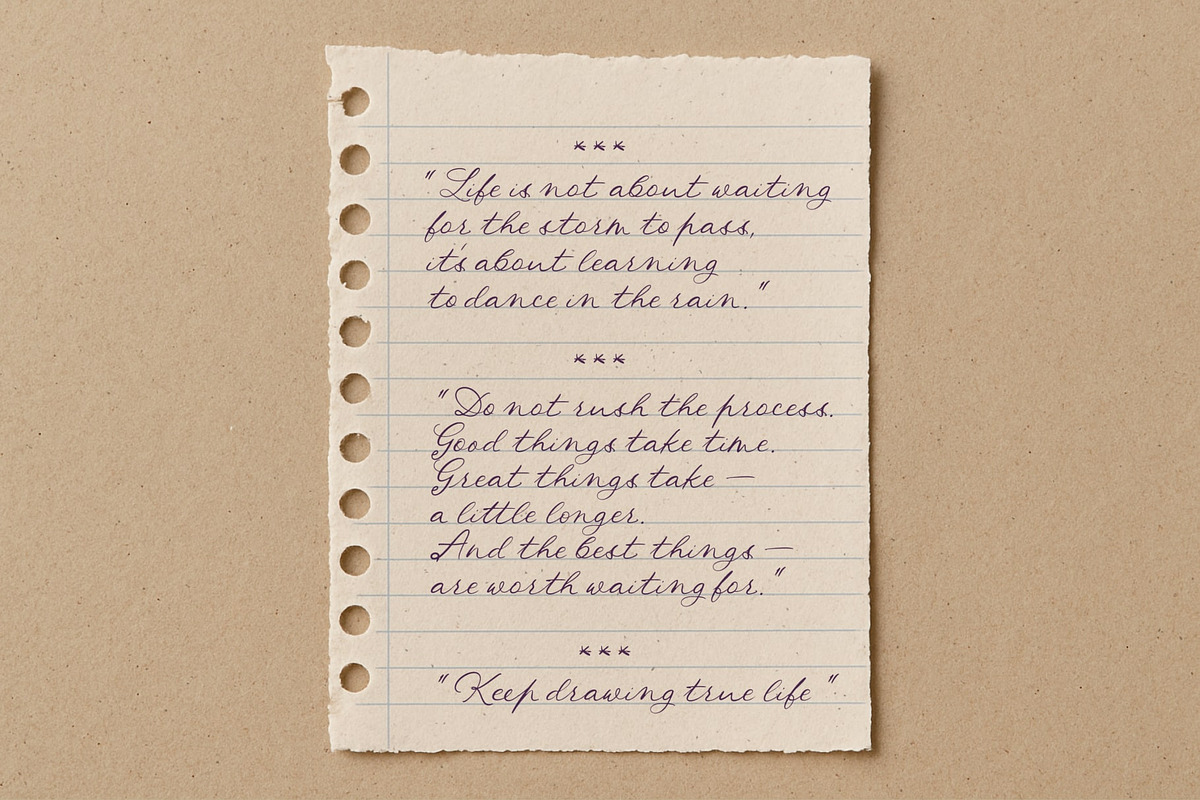 ***
"Life is not about waiting
for the storm to pass,
it's about learning
to dance in the rain."
***
"Do not rush the process.
Good things take time.
Great things take —
a little longer.
And the best things —
are worth waiting for."
***
"Keep drawing true life"